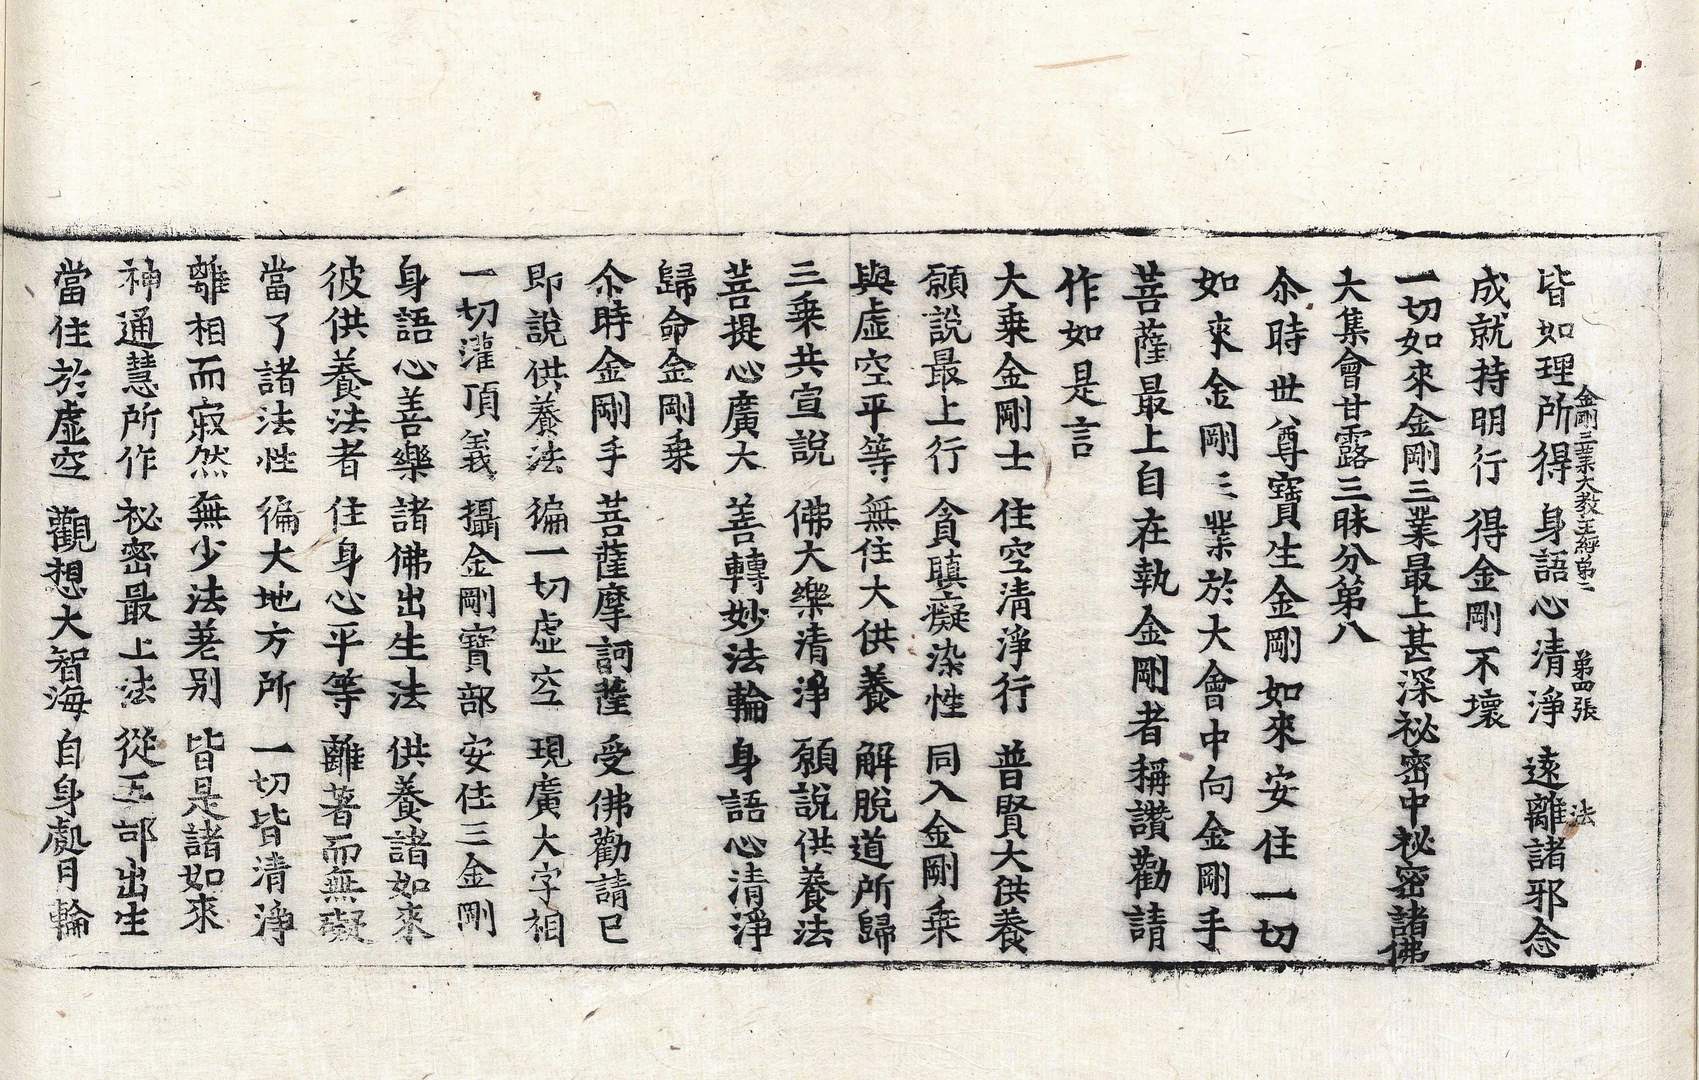 皆如理所得 身語心清淨 遠離諸邪念
金剛三業大教王經第二 第四張 法
成就持明行 得金剛不壞
一切如來金剛三業最上甚深祕密中祕密諸佛
大集會甘露三昧分第八
尒時世尊寶生金剛如來安住一切
如來金剛三業於大會中向金剛手
菩薩最上自在執金剛者稱讚勸請
作如是言
大乗金剛士 住空清淨行 普賢大供養
願說最上行 貪瞋癡染性 同入金剛乗
與虛空平等 無住大供養 解脫道所歸
三乗共宣說 佛大樂清淨 願說供養法
菩提心廣大 善轉妙法輪 身語心清淨
歸命金剛乗
尒時金剛手 菩薩摩訶薩 受佛勸請已
即說供養法 徧一切虛空 現廣大字相
一切灌頂義 攝金剛寶部 安住三金剛
身語心善樂 諸佛出生法 供養諸如來
彼供養法者 住身心平等 離著而無礙
當了諸法性 徧大地方所 一切皆清淨
離相而寂然 無少法差别 皆是諸如來
神通慧所作 祕密最上法 從五部出生
當住於虛空 觀想大智海 自身處月輪